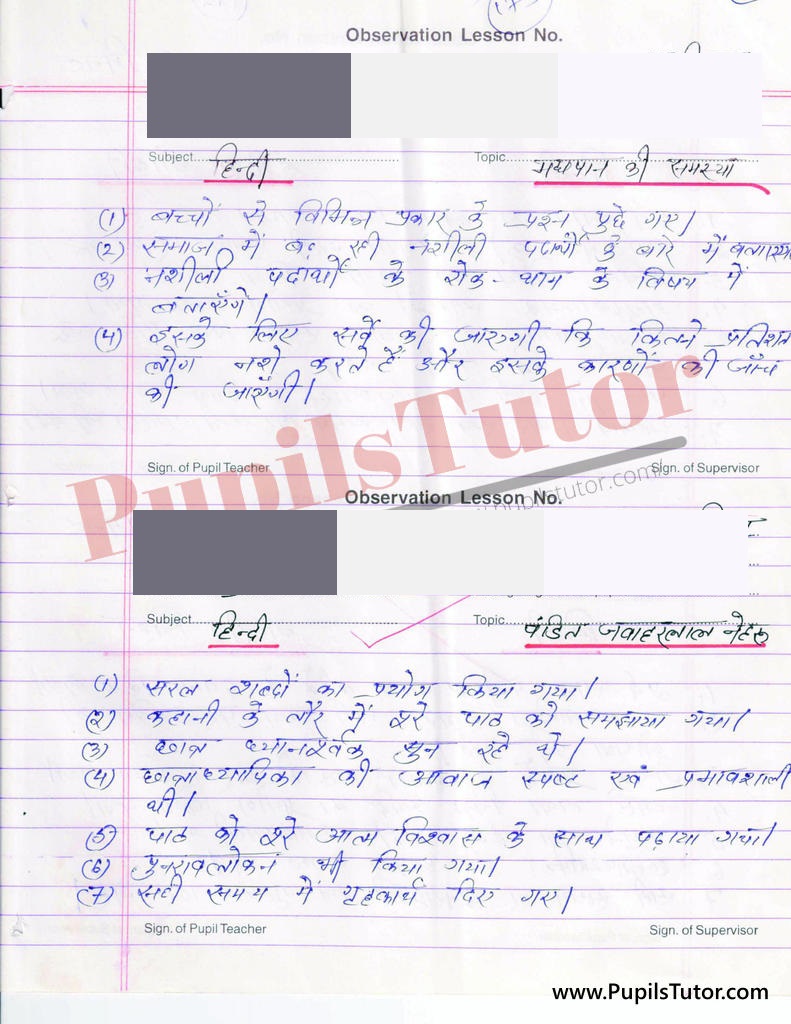 Observation Lesson No.
Subject हिन्दी Topic मद्यपान की समस्या
(1) बच्चों से विभिन्न प्रकार के प्रश्न पुछे गए।
(2) समाज में बढ़ रही नशीली पदार्थों के बारे में बताया
(3) नशीली पदार्थों के रोक-थाम के विषय में
बताएँगे।
(4) इसके लिए सर्वे की जाएगी कि कितने प्रतिशत
लोग नशे करते हैं और इसके कारणों की जाँच
की जाएँगी।
PupilsTutor
Sign. of Pupil Teacher Sign. of Supervisor
Observation Lesson No.
Subject हिन्दी Topic पंडित जवाहरलाल नेहरू
(1) सरल शब्दों का प्रयोग किया गया।
(2) कहानी के तौर में पूरे पाठ को समझाया गया।
(3) छात्र ध्यानपूर्वक सुन रहे थे।
(4) छात्राध्यापिका की आवाज स्पष्ट एवं प्रभावशाली
थी।
(5) पाठ को पूरे आत्म विश्वास के साथ पढ़ाया गया।
(6) पुनरावलोकन भी किया गया।
(7) सही समय में गृहकार्य दिए गए।
Sign. of Pupil Teacher Sign. of Supervisor
www.PupilsTutor.com